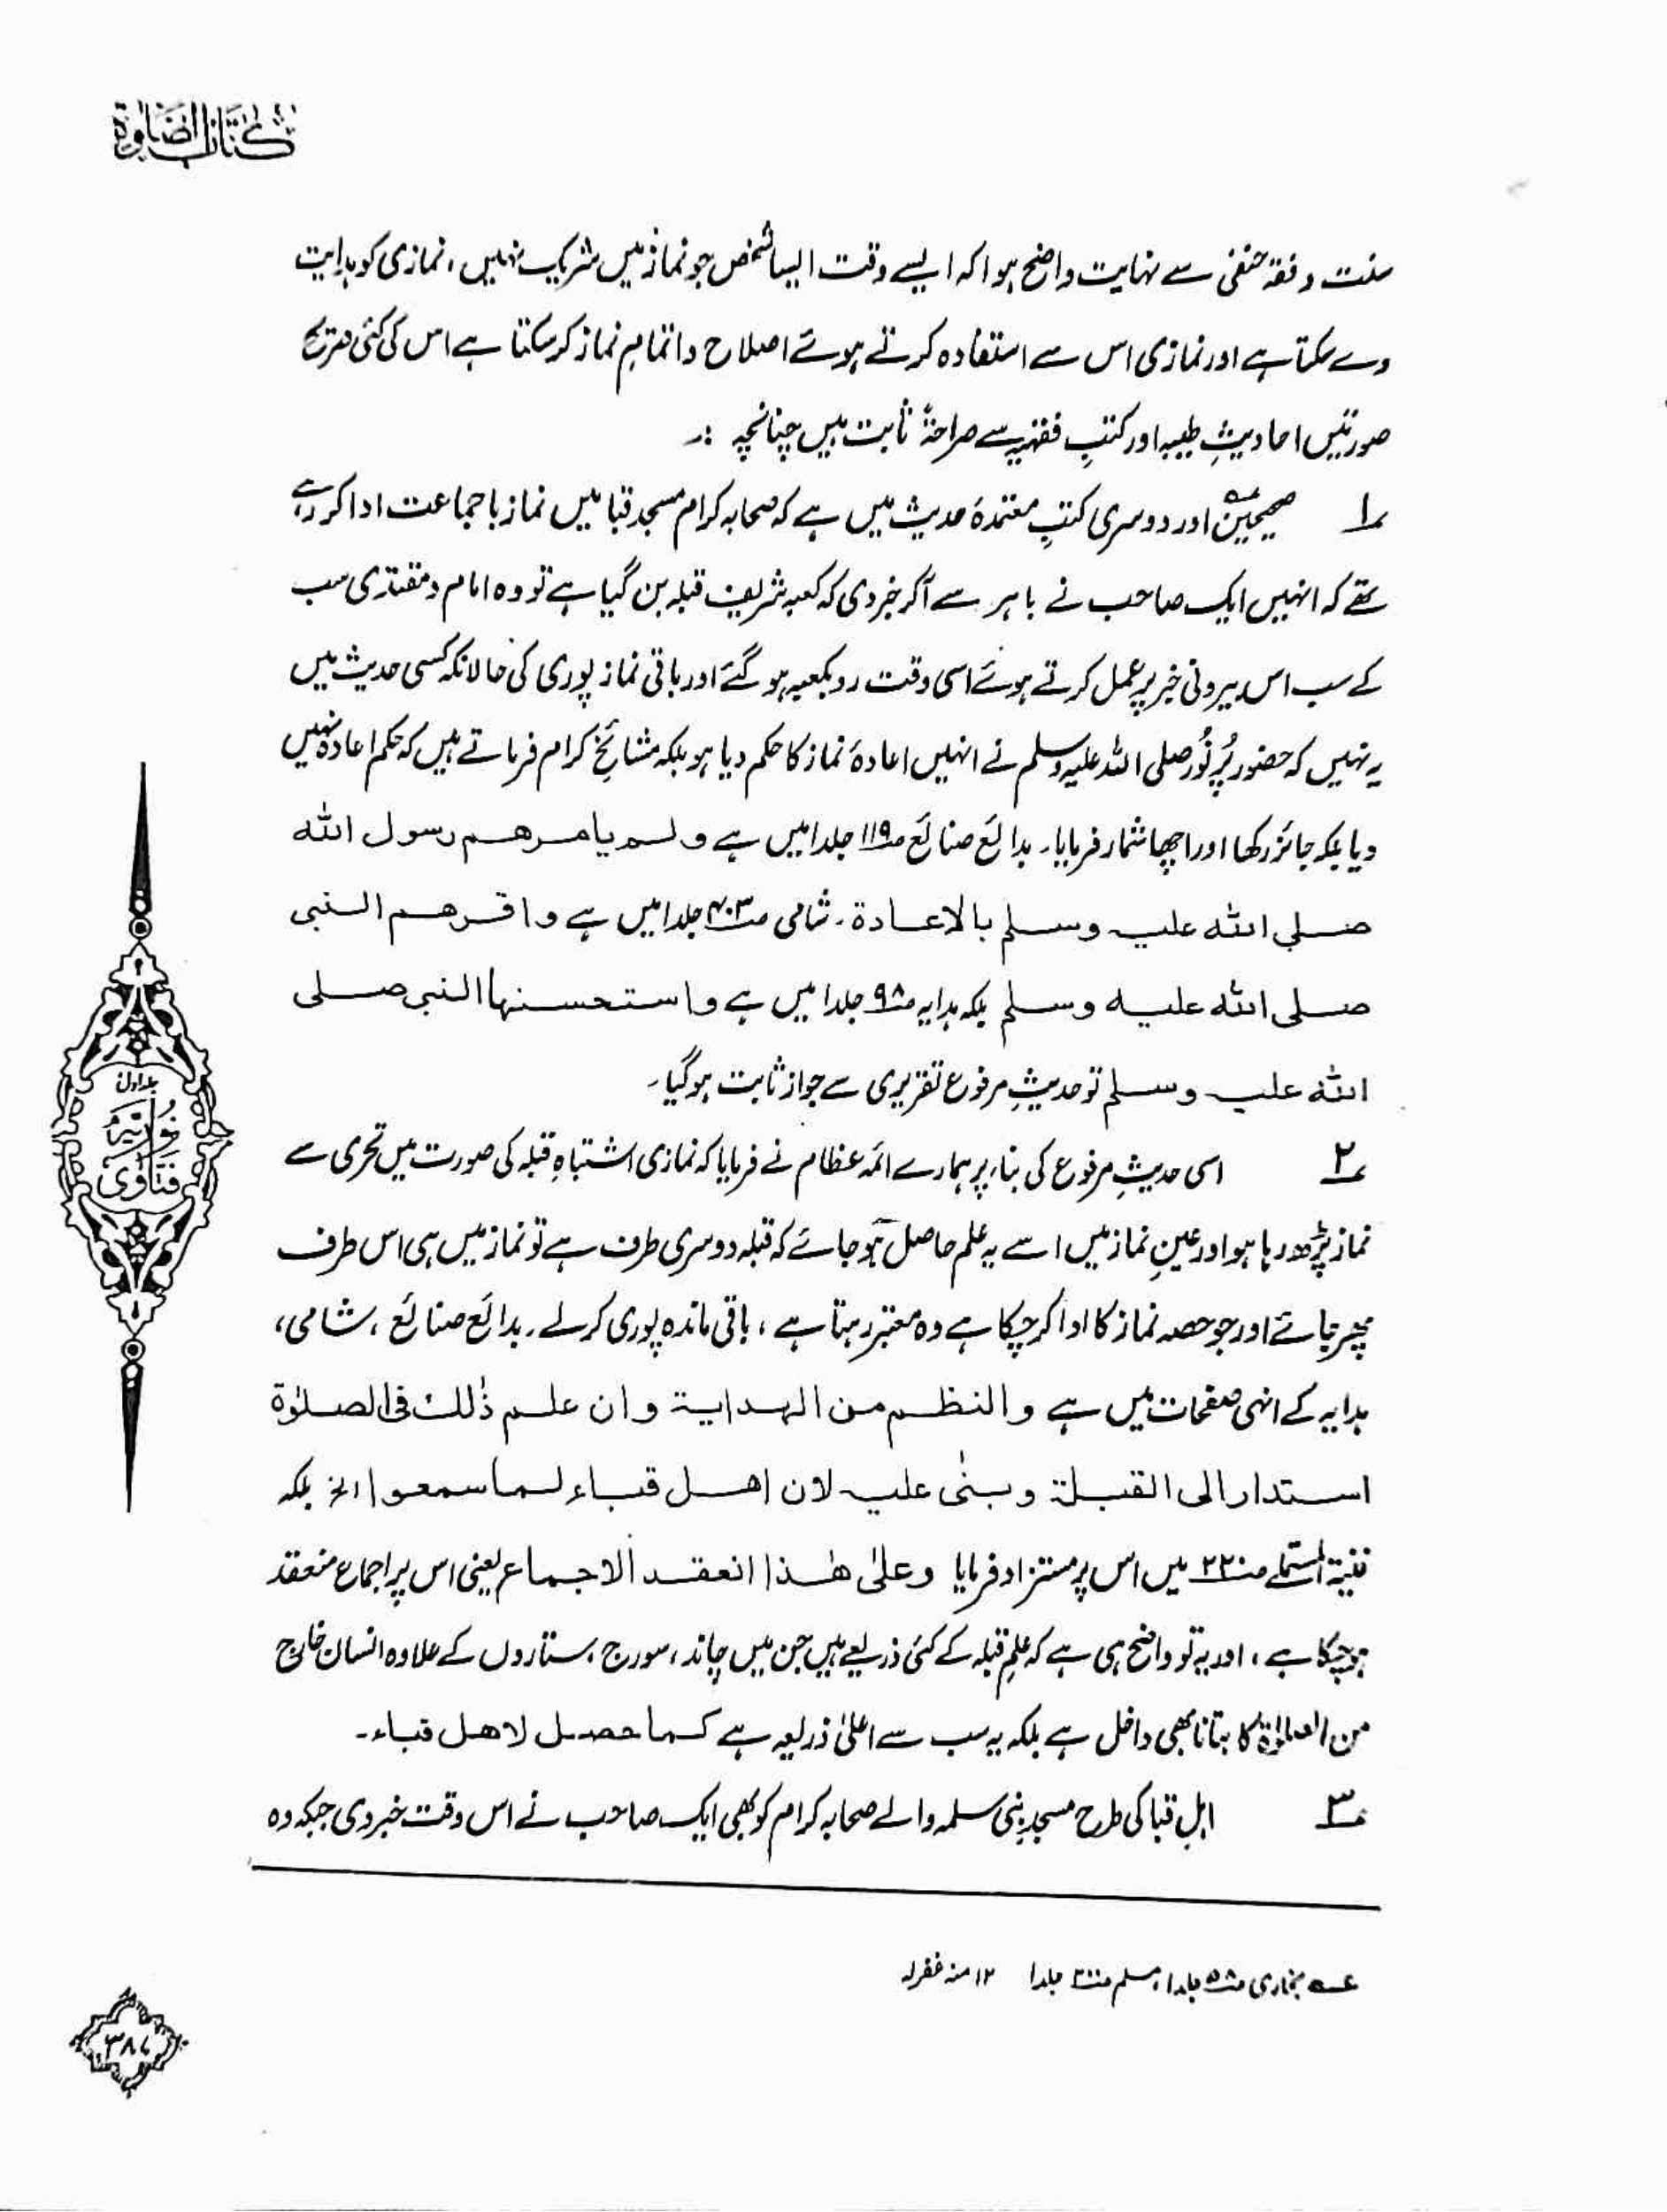 كتاب الصلوة
سنت و فقہ حنفی سے نہایت واضح ہوا کہ ایسے وقت ایسا شخص جو نماز میں شریک نہیں، نمازی کو ہدایت
دے سکتا ہے اور نمازی اس سے استفادہ کرتے ہوئے اصلاح و اتمامِ نماز کر سکتا ہے اس کی کئی
صورتیں احادیثِ طیبہ اور کتبِ فقہیہ سے صراحۃً ثابت ہیں چنانچہ :۔
۱ صحیحین عہ اور دوسری کتبِ معتمدۂ حدیث میں ہے کہ صحابہ کرام مسجد قبا میں نماز باجماعت ادا کر رہے
تھے کہ انہیں ایک صاحب نے باہر سے آکر خبر دی کہ کعبہ شریف قبلہ بن گیا ہے تو وہ امام و مقتدی سب
کے سب اس بیرونی خبر پر عمل کرتے ہوئے اسی وقت روبکعبہ ہو گئے اور باقی نماز پوری کی حالانکہ کسی حدیث میں
یہ نہیں کہ حضور پُر نُور صلی اللہ علیہ وسلم نے انہیں اعادۂ نماز کا حکم دیا ہو بلکہ مشائخِ کرام فرماتے ہیں کہ حکم اعادہ نہیں
دیا بلکہ جائز رکھا اور اچھا شمار فرمایا۔ بدائع صنائع ص۱۱۹ جلد۱ میں ہے ولم یامرهم رسول اللہ
صلی اللہ علیہ وسلم بالاعادة۔ شامی ص۴۰۳ جلد۱ میں ہے واقرهم النبی
صلی اللہ علیہ وسلم بلکہ ہدایہ ص۹۸ جلد۱ میں ہے واستحسنها النبی صلی
اللہ علیہ وسلم تو حدیثِ مرفوع تقریری سے جواز ثابت ہوگیا۔
۲ اسی حدیثِ مرفوع کی بناء پر ہمارے ائمہ عظام نے فرمایا کہ نمازی اشتباہِ قبلہ کی صورت میں تحری سے
نماز پڑھ رہا ہو اور عینِ نماز میں اسے یہ علم حاصل ہو جائے کہ قبلہ دوسری طرف ہے تو نماز میں ہی اس طرف
پھر جائے اور جو حصہ نماز کا ادا کر چکا ہے وہ معتبر رہتا ہے، باقی ماندہ پوری کر لے۔ بدائع صنائع، شامی،
ہدایہ کے انہی صفحات میں ہے والنظم من الهداية وان علم ذٰلك فی الصلوٰة
استدار الی القبلة وبنٰی علیہ لان اهل قباء لما سمعوا الخ بلکہ
غنیۃ المستملی ص۲۲۰ میں اس پر مستزاد فرمایا وعلیٰ هٰذا انعقد الاجماع یعنی اس پر اجماع منعقد
ہو چکا ہے، اور یہ تو واضح ہی ہے کہ علمِ قبلہ کے کئی ذریعے ہیں جن میں چاند، سورج، ستاروں کے علاوہ انسان خارج
من الصلوٰة کا بتانا بھی داخل ہے بلکہ یہ سب سے اعلیٰ ذریعہ ہے کما حصل لاهل قباء۔
۳ اہلِ قبا کی طرح مسجدِ بنی سلمہ والے صحابہ کرام کو بھی ایک صاحب نے اس وقت خبر دی جبکہ وہ
عہ بخاری ص۵۸ جلد۱، مسلم ص۲۰۰ جلد۱ ۱۲ منہ غفرلہ
جلد اول
نُوریہ
فتاوٰی
۳۸۷